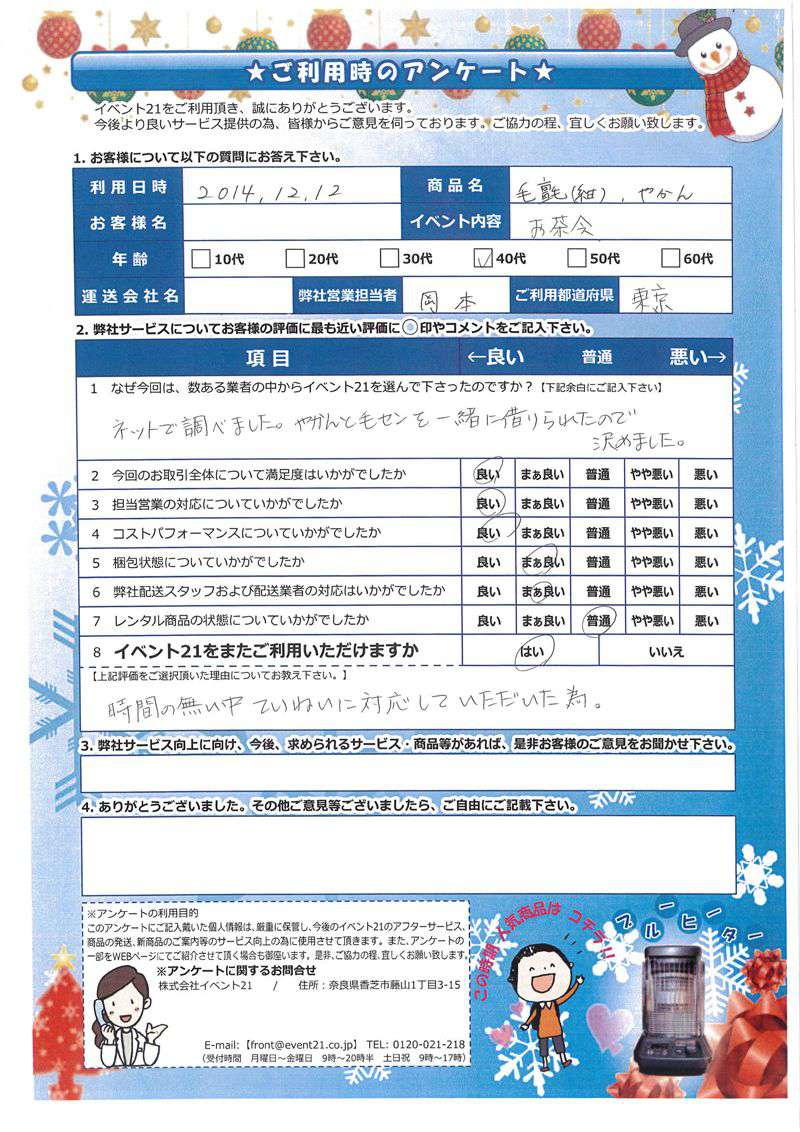 ★ご利用時のアンケート★
イベント21をご利用頂き、誠にありがとうございます。
今後より良いサービス提供の為、皆様からご意見を伺っております。ご協力の程、宜しくお願い致します。
1. お客様について以下の質問にお答え下さい。
利用日時 2014.12.12 商品名 毛氈(紺)、やかん
お客様名 イベント内容 お茶会
年齢 □10代 □20代 □30代 ☑40代 □50代 □60代
運送会社名 弊社営業担当者 岡本 ご利用都道府県 東京
2. 弊社サービスについてお客様の評価に最も近い評価に○印やコメントをご記入下さい。
項目 ←良い 普通 悪い→
1 なぜ今回は、数ある業者の中からイベント21を選んで下さったのですか?【下記余白にご記入下さい】
ネットで調べました。やかんと毛センを一緒に借りられたので
決めました。
2 今回のお取引全体について満足度はいかがでしたか 良い まぁ良い 普通 やや悪い 悪い
3 担当営業の対応についていかがでしたか 良い まぁ良い 普通 やや悪い 悪い
4 コストパフォーマンスについていかがでしたか 良い まぁ良い 普通 やや悪い 悪い
5 梱包状態についていかがでしたか 良い まぁ良い 普通 やや悪い 悪い
6 弊社配送スタッフおよび配送業者の対応はいかがでしたか 良い まぁ良い 普通 やや悪い 悪い
7 レンタル商品の状態についていかがでしたか 良い まぁ良い 普通 やや悪い 悪い
8 イベント21をまたご利用いただけますか はい いいえ
【上記評価をご選択頂いた理由についてお教え下さい。】
時間の無い中ていねいに対応していただいた為。
3. 弊社サービス向上に向け、今後、求められるサービス・商品等があれば、是非お客様のご意見をお聞かせ下さい。
4. ありがとうございました。その他ご意見等ございましたら、ご自由にご記載下さい。
※アンケートの利用目的
このアンケートにご記入戴いた個人情報は、厳重に保管し、今後のイベント21のアフターサービス、
商品の発送、新商品のご案内等のサービス向上の為に使用させて頂きます。また、アンケートの
一部をWEBページにてご紹介させて頂く場合も御座います。是非、ご協力の程、宜しくお願い致します。
※アンケートに関するお問合せ
株式会社イベント21 / 住所:奈良県香芝市藤山1丁目3-15
E-mail:【front@event21.co.jp】 TEL: 0120-021-218
(受付時間 月曜日~金曜日 9時~20時半 土日祝 9時~17時)
この時期人気商品はコチラ!!
ブルーヒーター